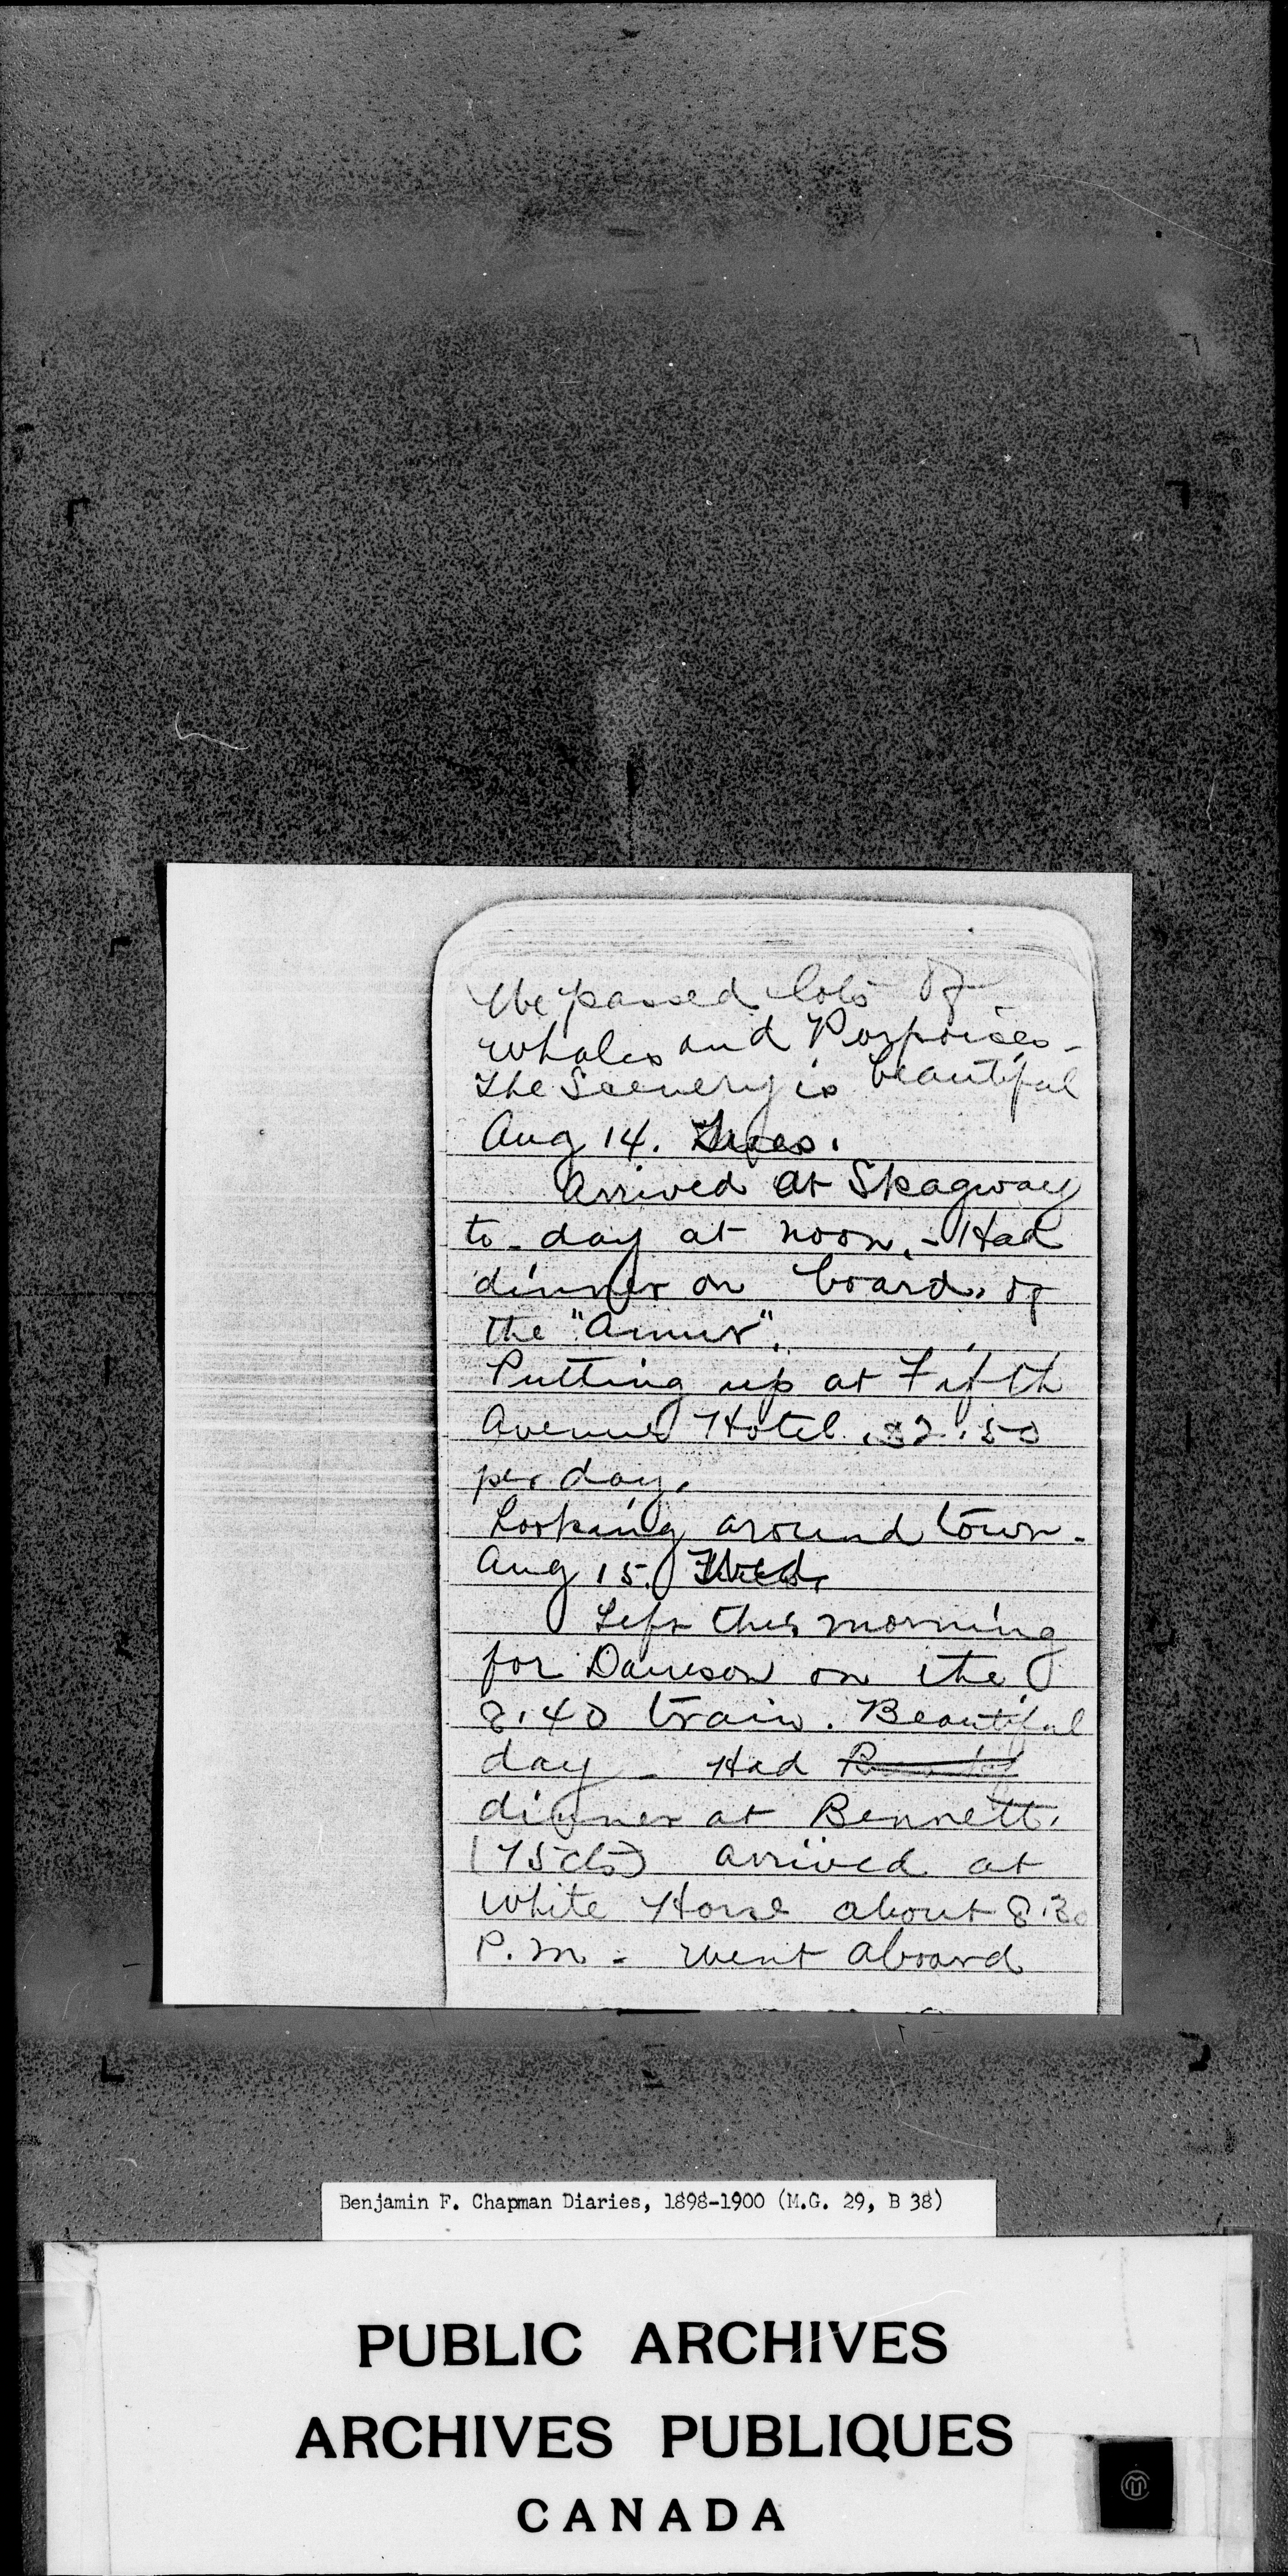 We passed lots of
whales and Porpoises -
The Scenery is beautiful
Aug 14. Tues.
Arrived at Skagway
to-day at noon. - Had
dinner on board of
the "Amur".
Putting up at Fifth
Avenue Hotel. $2.50
per day.
Looking around town.
Aug 15. Wed.
Left this morning
for Dawson on the
8.40 train. Beautiful
day - Had
dinner at Bennett.
(75cts) arrived at
White Horse about 8.30
P.M. - went aboard
Benjamin F. Chapman Diaries, 1898-1900 (M.G. 29, B 38)
PUBLIC ARCHIVES
ARCHIVES PUBLIQUES
CANADA